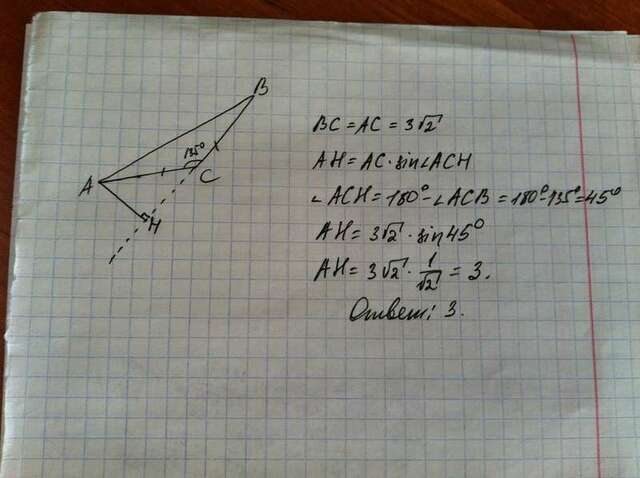 B
135°
A
C
H
BC = AC = 3√2
AH = AC · sin∠ACH
∠ACH = 180° - ∠ACB = 180° - 135° = 45°
AH = 3√2 · sin45°
AH = 3√2 · 1/√2 = 3.
Ответ: 3.